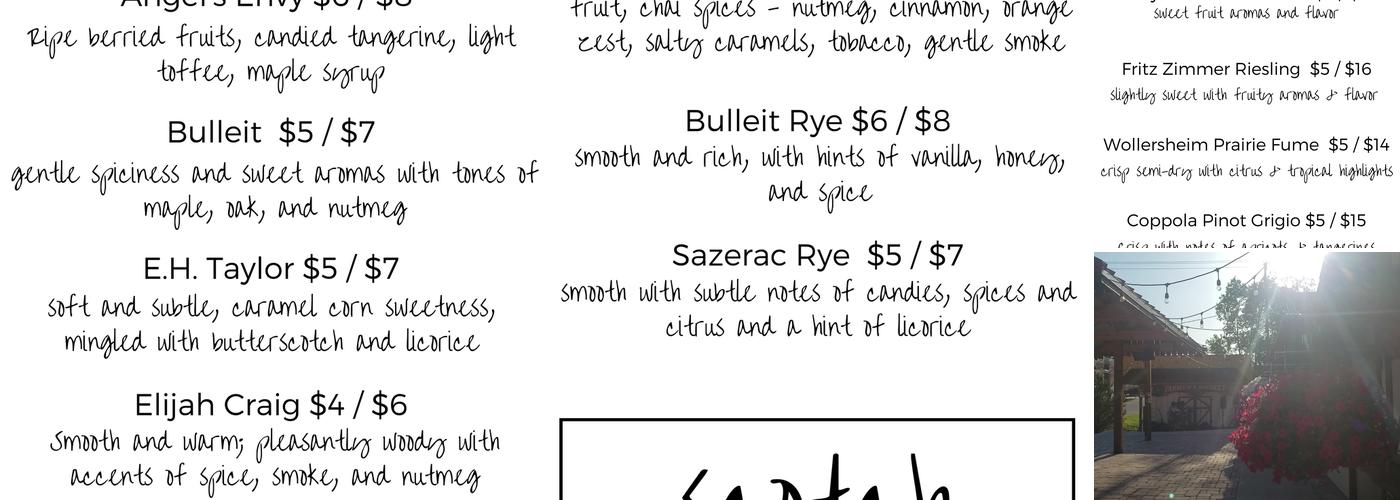 Angel's Envy $6 / $8
Ripe berried fruits, candied tangerine, light
toffee, maple syrup
Bulleit $5 / $7
gentle spiciness and sweet aromas with tones of
maple, oak, and nutmeg
E.H. Taylor $5 / $7
soft and subtle, caramel corn sweetness,
mingled with butterscotch and licorice
Elijah Craig $4 / $6
Smooth and warm; pleasantly woody with
accents of spice, smoke, and nutmeg
fruit, chai spices - nutmeg, cinnamon, orange
zest, salty caramels, tobacco, gentle smoke
Bulleit Rye $6 / $8
smooth and rich, with hints of vanilla, honey,
and spice
Sazerac Rye $5 / $7
smooth with subtle notes of candies, spices and
citrus and a hint of licorice
scotch
sweet fruit aromas and flavor
Fritz Zimmer Riesling $5 / $16
slightly sweet with fruity aromas & flavor
Wollersheim Prairie Fume $5 / $14
crisp semi-dry with citrus & tropical highlights
Coppola Pinot Grigio $5 / $15
crisp with notes of apricots & tangerines